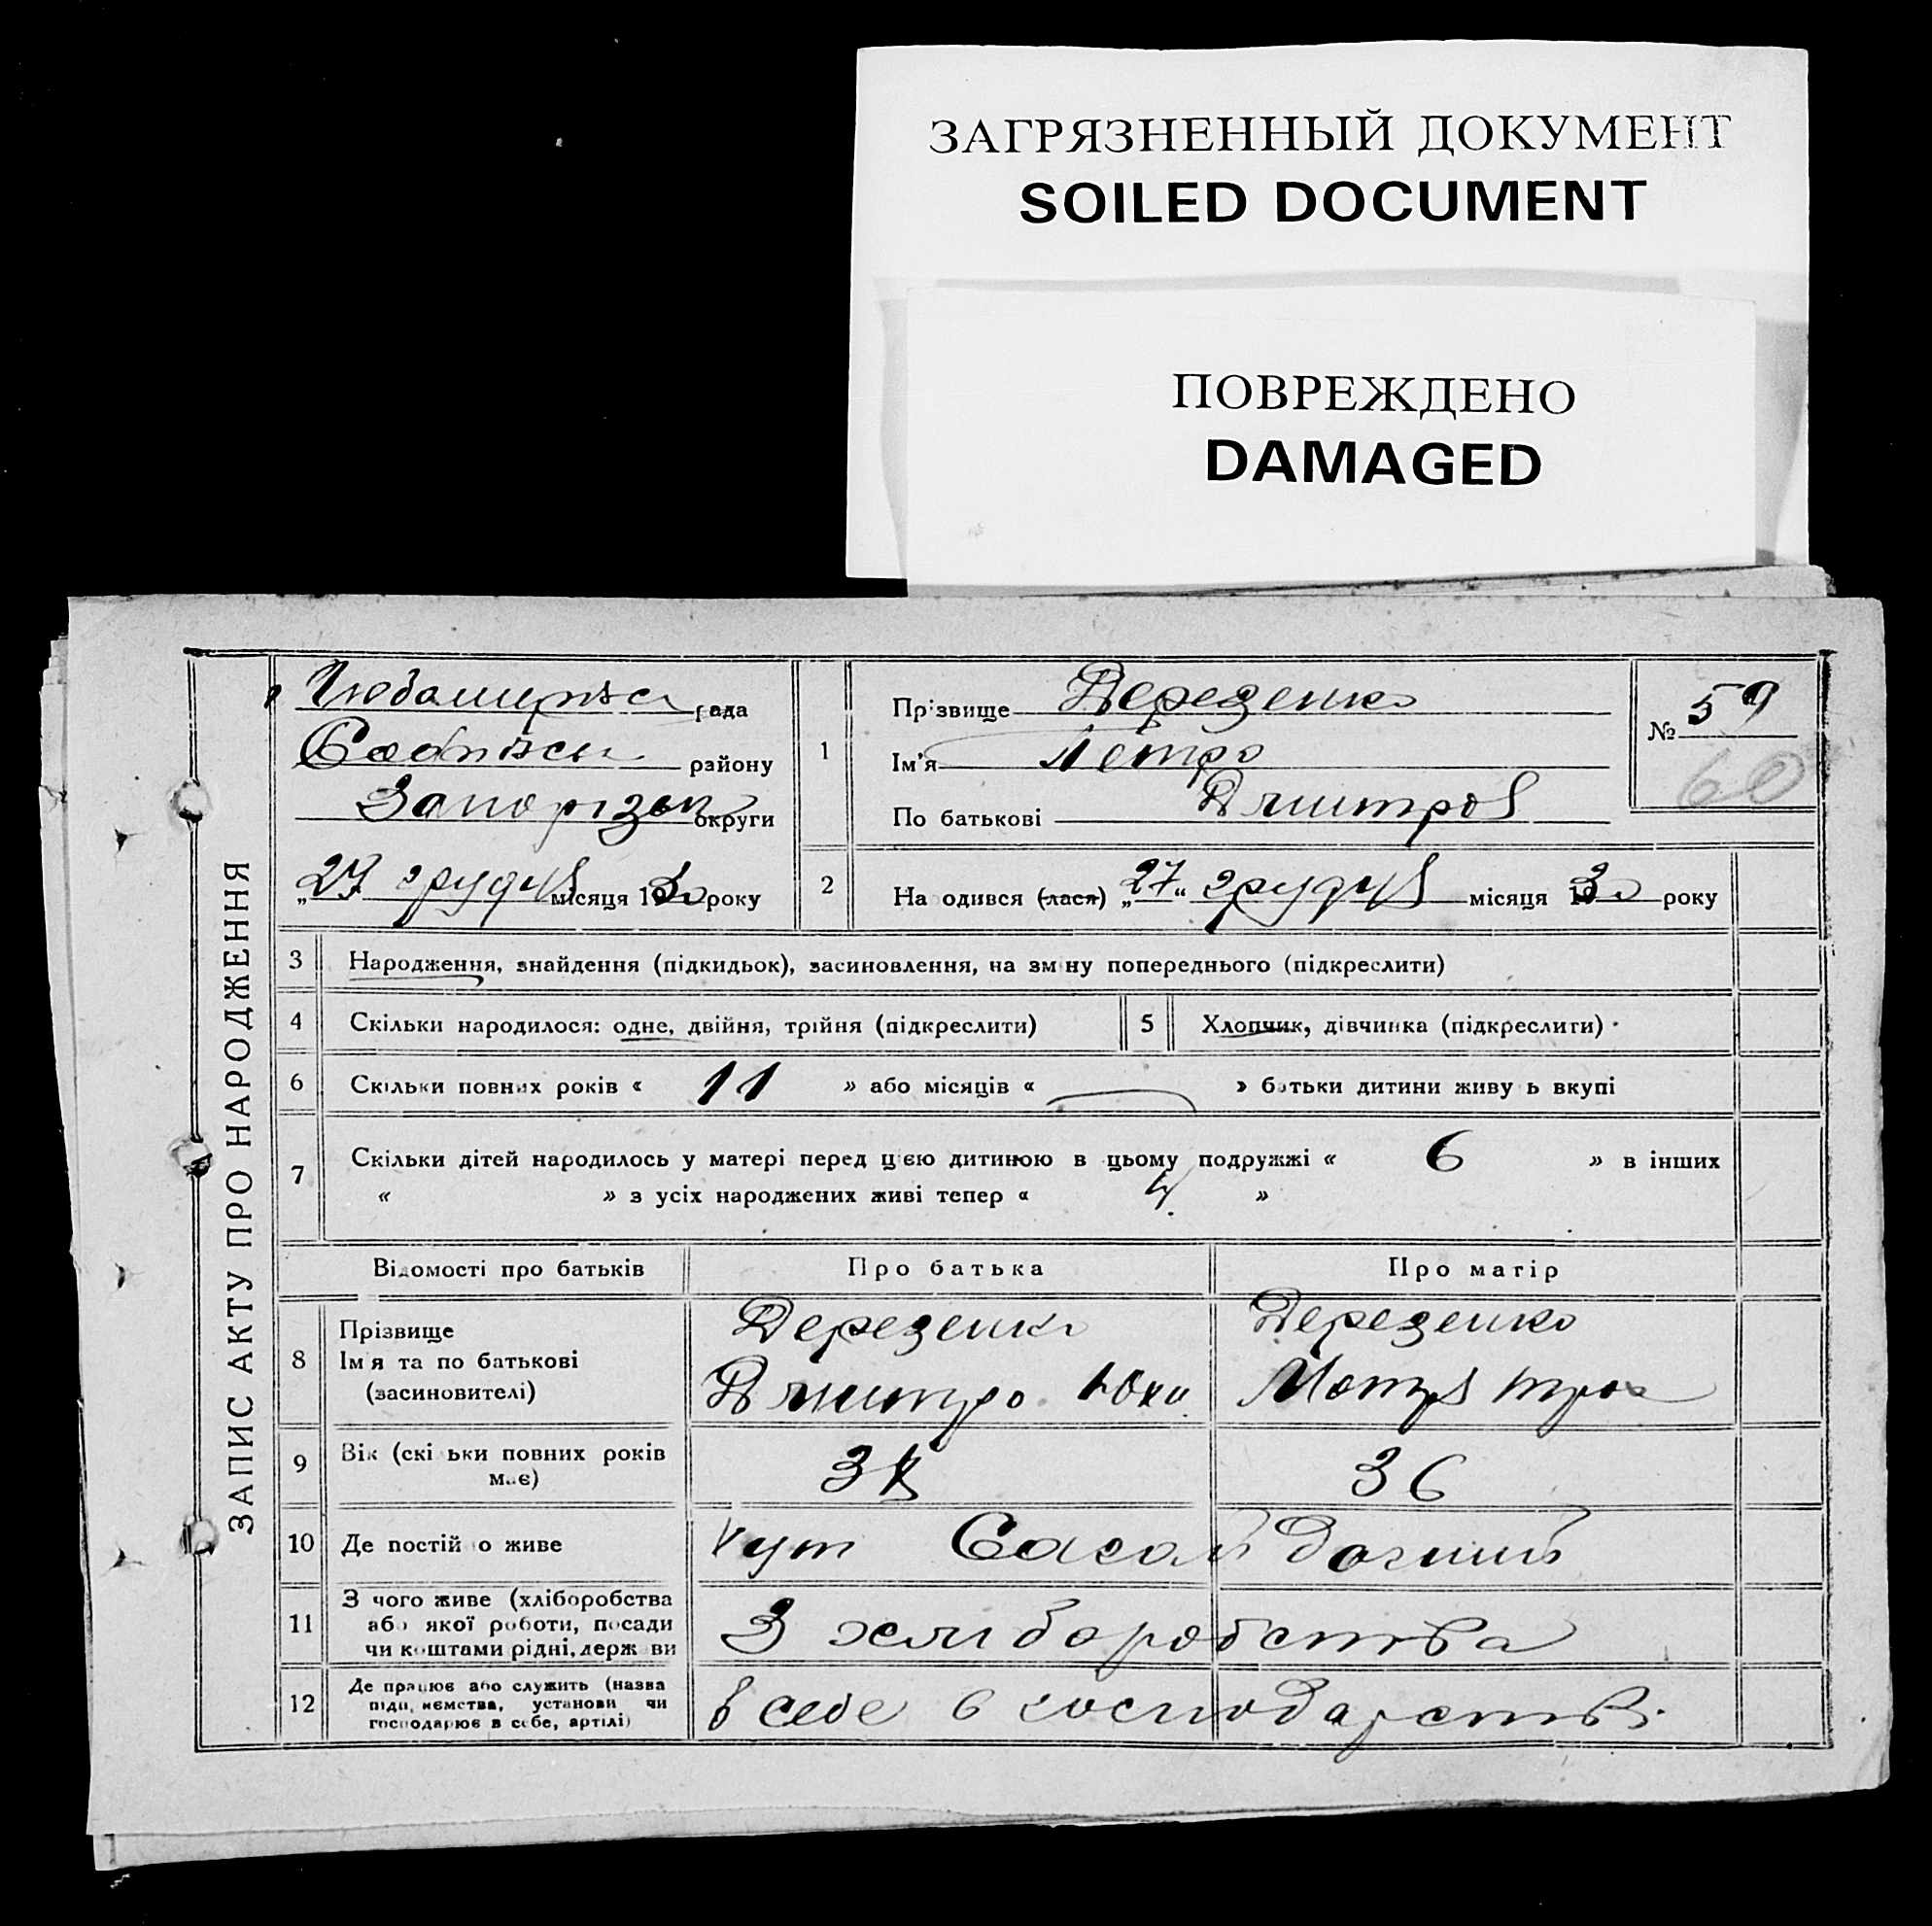 ЗАГРЯЗНЕННЫЙ ДОКУМЕНТ
SOILED DOCUMENT
ПОВРЕЖДЕНО
DAMAGED
ЗАПИС АКТУ ПРО НАРОДЖЕННЯ
рада
району
округи
„27 грудня місяця 1930 року
1
Прізвище Дерезенко
Ім'я Петро
По батькові Дмитров
№ 59
60
2
Народився (лася) „27“ грудня місяця 1930 року
3 Народження, знайдення (підкидьок), засиновлення, на зміну попереднього (підкреслити)
4 Скільки народилося: одне, двійня, трійня (підкреслити)
5 Хлопчик, дівчинка (підкреслити)
6 Скільки повних років « 11 » або місяців « — » батьки дитини живуть вкупі
7 Скільки дітей народилось у матері перед цією дитиною в цьому подружжі « 6 » в інших
« » з усіх народжених живі тепер « 4 »
Відомості про батьків Про батька Про матір
8 Прізвище Дерезенко Дерезенко
Ім'я та по батькові Дмитро Мотря
(засиновителі)
9 Вік (скільки повних років 36
має)
10 Де постійно живе хут
11 З чого живе (хліборобства
або якої роботи, посади З хліборобства
чи коштами рідні, держави
12 Де працює або служить (назва
підприємства, установи чи в себе в господарстві.
господарює в себе, артілі)